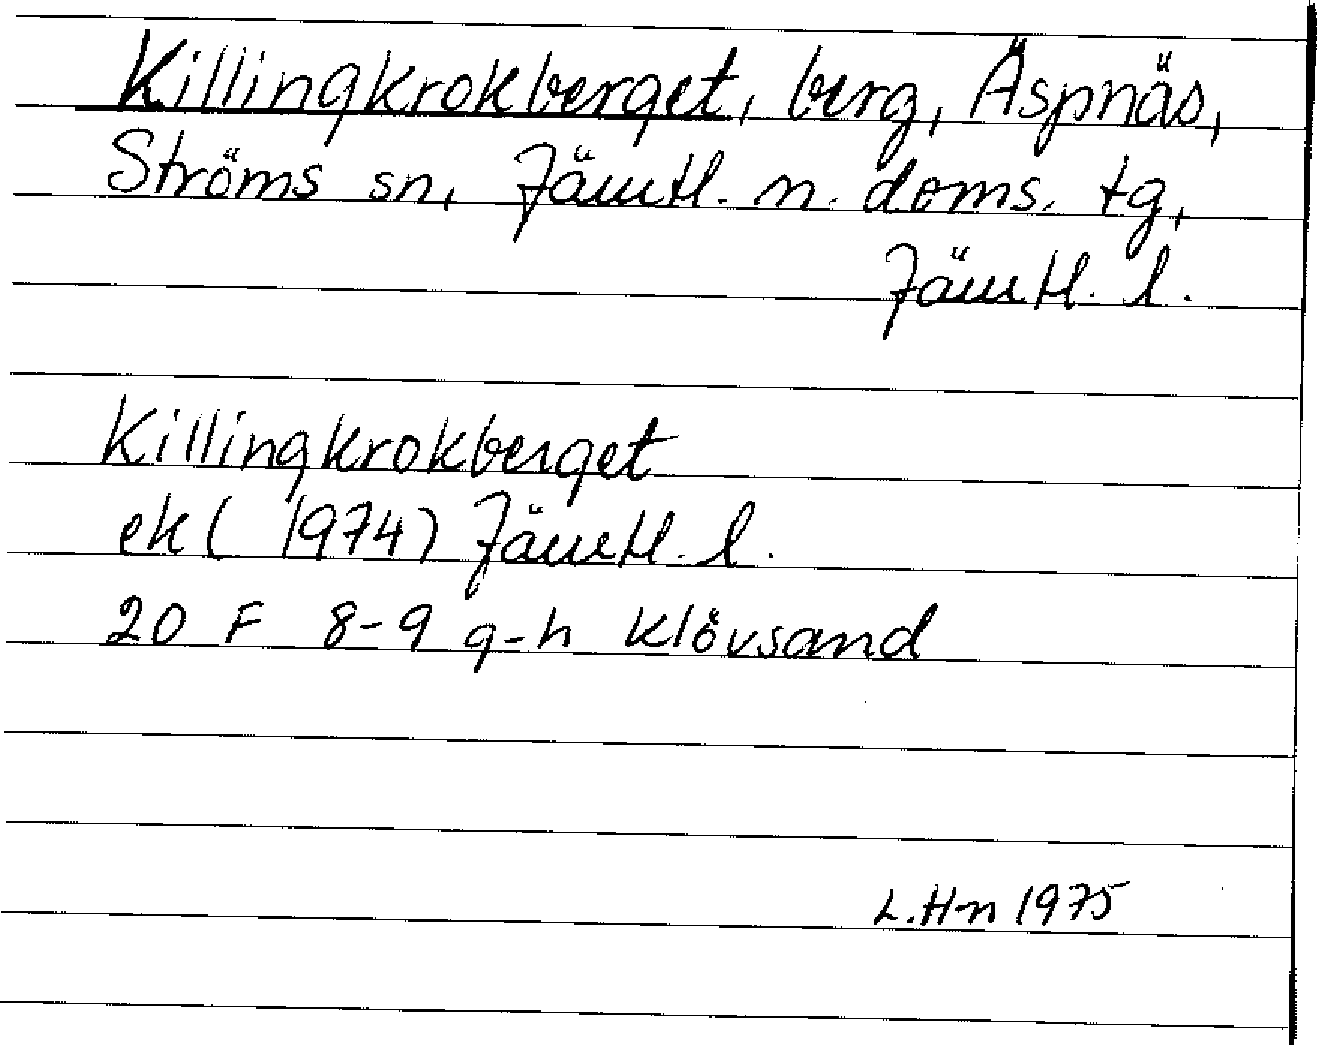 Killingkrokberget, berg, Äspnäs,
Ströms sn, Jämtl. n. doms. tg,
Jämtl. l.
Killingkrokberget
ek ( 1974) Jämtl. l.
20 F 8-9 g-h Klövsand
L. H-n 1975